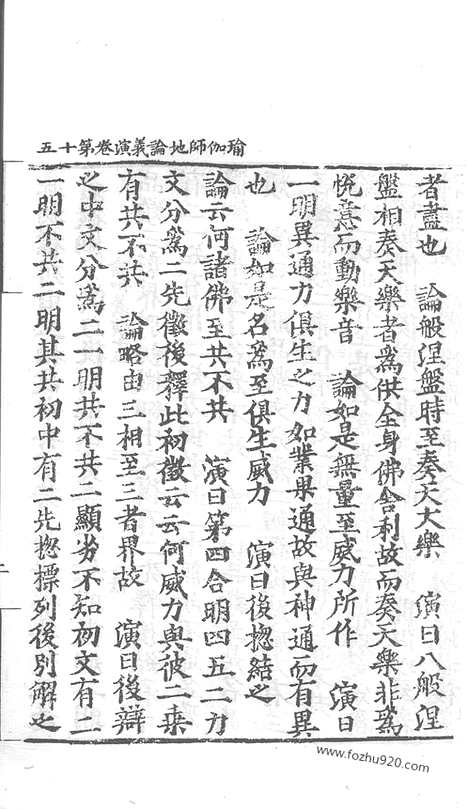 瑜伽師地論義演卷第十五
者盡也　論般涅盤時至奏天大樂　演曰八般涅
盤相奏天樂者為供全身佛舍利故而奏天樂非為
悅意而動樂音　論如是無量至威力所作　演曰
一明異通力俱生之力如業果通故與神通而有異
也　論如是名為至俱生威力　演曰後揔結之
論云何諸佛至共不共　演曰第四合明四五二力
文分為二先徵後釋此初徵云云何威力與彼二乗
有共不共　論略由三相至三者界故　演曰後辯
之中文分為二一明共不共二顯劣不知初文有二
一明不共二明其共初中有二先揔標列後別解之
www.fozhu920.com